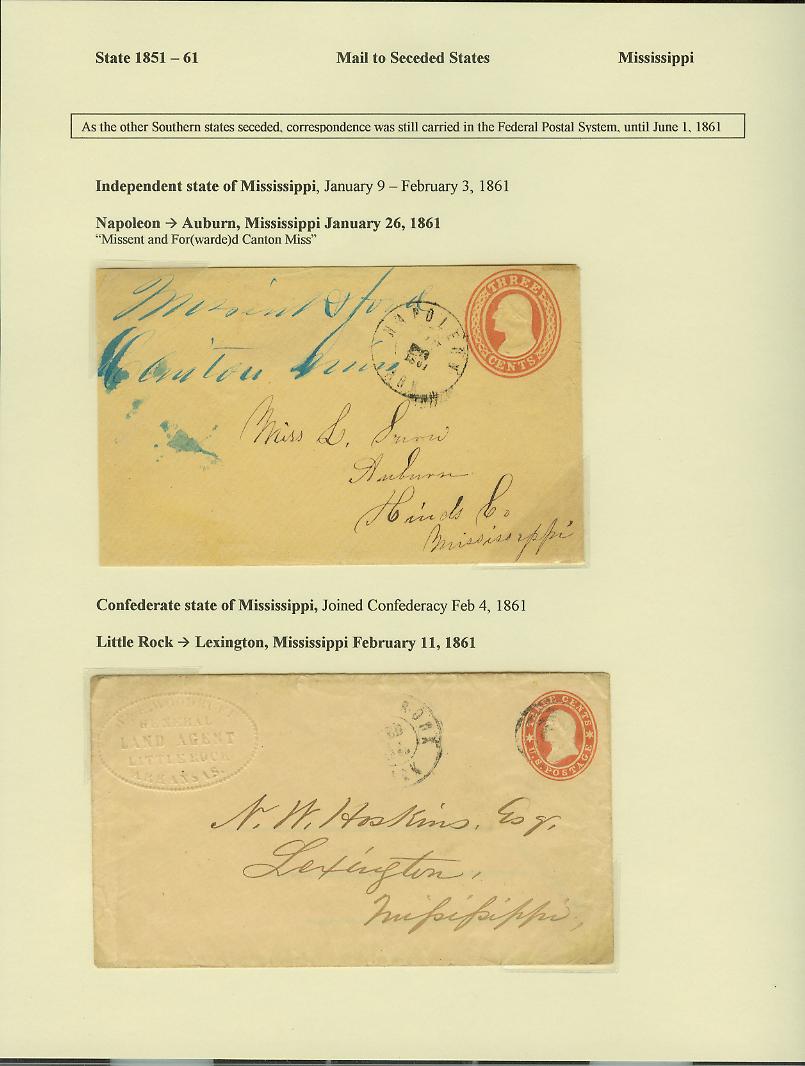 State 1851 – 61 Mail to Seceded States Mississippi
As the other Southern states seceded, correspondence was still carried in the Federal Postal System, until June 1, 1861
Independent state of Mississippi, January 9 – February 3, 1861
Napoleon → Auburn, Mississippi January 26, 1861
“Missent and For(warde)d Canton Miss”
Missent & ford
Canton Miss
THREE
CENTS
NAPOLEON
1861
ARK
Miss L.
Auburn
Hinds Co
Mississippi
Confederate state of Mississippi, Joined Confederacy Feb 4, 1861
Little Rock → Lexington, Mississippi February 11, 1861
GENERAL
LAND AGENT
LITTLE ROCK
ARKANSAS.
ROCK
ARK
THREE CENTS
U.S. POSTAGE
N. W. Hoskins, Esq.
Lexington,
Mifsifsippi,